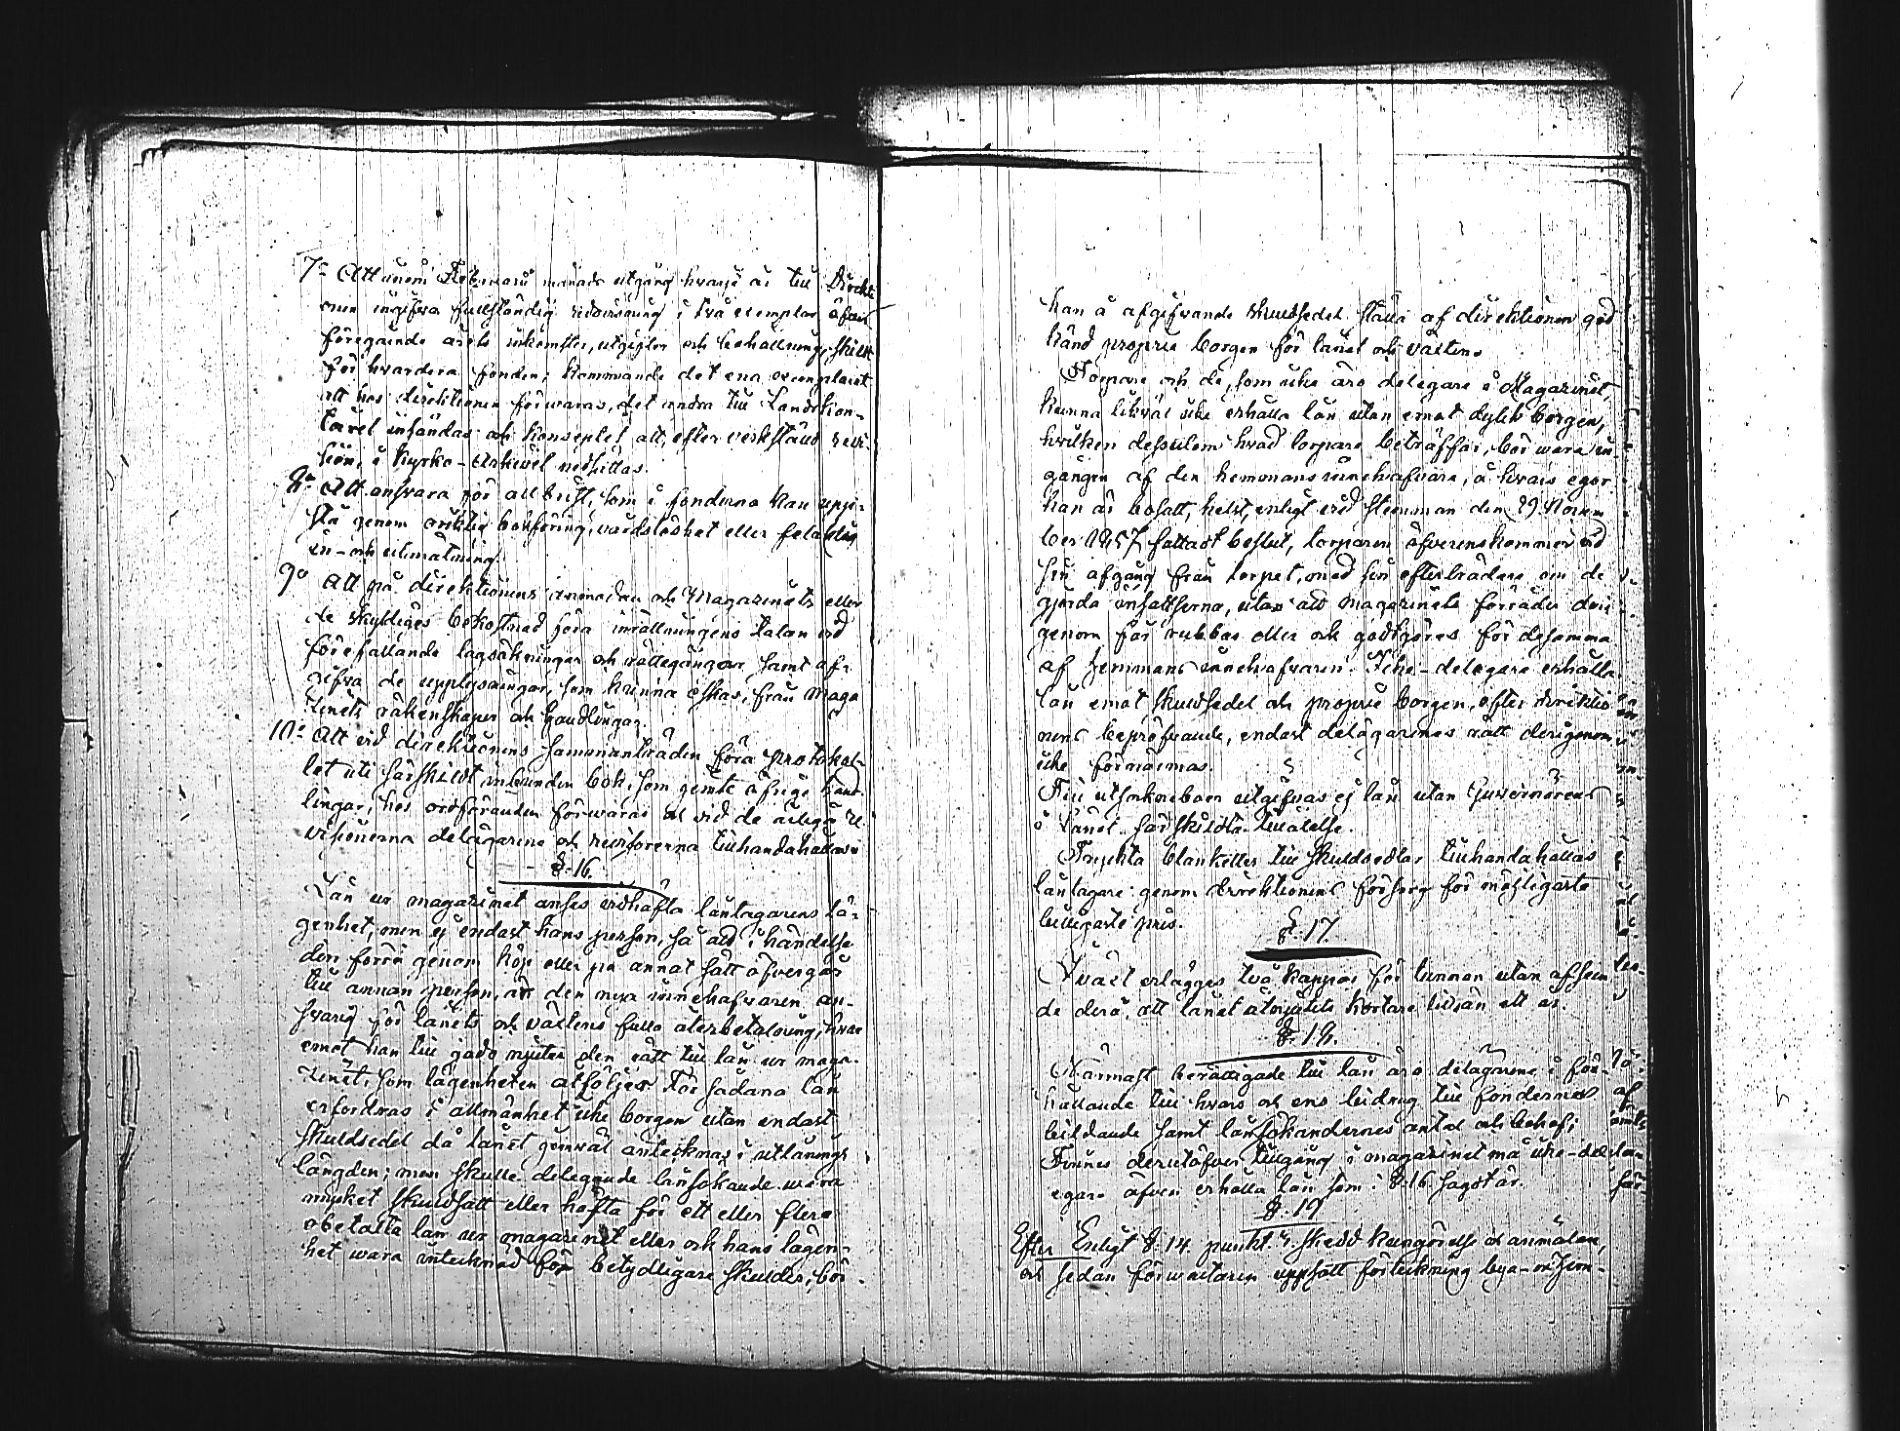 7:o Att innom Februarii månads utgång hvarje år till Direkti
onen ingifva fullständig redovisning i två exemplar öfver
föregående årets inkomster, utgifter och behållning, skildt
för hvardera fonden; kommande det ena exemplaret
att hos direktionen förwaras, det andra till Landtkon-
toret insändas och konceptet att, efter verkstäld revi-
sion, i Kyrko-Arkivet nedsättas.
8:o Att ansvara för all brist, som i fonderna kan upp-
stå genom oriktig bokföring, vårdslöshet eller felaktig
in- och utmätning.
9:o Att på direktionens anmodan och Magazinets eller
de skyldiges bekostnad föra inrättningens talan vid
förefallande lagsökningar och rättegångar, samt af-
gifva de upplysningar, som kunna äskas, från Maga
zinets räkenskaper och handlingar.
10:o Att vid direktionens sammanträden föra protokol-
let uti särskildt inbunden bok, som jemte öfriga hand
lingar, hos ordföranden förwaras och vid de årliga re
visionerna delägarene och revisorerna tillhandahållas
§. 16.
Lån ur magazinet anses vidhäfta låntagarens lä-
genhet, men ej endast hans person, så att i händelse
den förra genom köp eller på annat sätt öfvergår
till annan person, är den nya innehafvaren an-
svarig för lånets och växtens fulla återbetalning, hvar
emot han till godo njuter den rätt till lån ur maga-
zinet, som lägenheten åtföljer. För sådana lån
erfordras i allmänhet icke borgen utan endast
skuldsedel då lånet jemväl antecknas i utlånings
längden; men skulle delegande lånsökande wara
mycket skuldsatt eller häfta för ett eller flera
obetalta lån ur magazinet eller ock hans lägen-
het wara intecknad för betydligare skulder, bör
han å afgifvande skuldsedel ställa af direktionen god
känd proprie borgen för lånet och växten.
Torpare och de, som icke äro delegare i Magazinet,
kunna likväl icke erhålla lån utan emot dylik borgen,
hvilken dessutom hvad torpare beträffar, bör wara in
gången af den hemmansinnehafvare, å hvars egor
han är bosatt, helst, enligt vid stemman den 29 Novem
ber 1857 fattadt beslut, torparen öfverenskommer vid
sin afgång från torpet, med sin efterträdare om de
gjorda insattserna, utan att magazinets förråder deri
genom får rubbas eller ock godtgöres för desamma
af hemmans innehafvaren. Icke-delegare erhålla
lån emot skuldsedel och proprie borgen, efter direktio
nens bepröfvande, endast delägarenes rätt derigenom
icke förnärmas.
Till utsockneboer utgifvas ej lån utan Guvernörens
i Länet särskildta tillåtelse.
Tryckta blanketter till skuldsedlar tillhandahållas
låntagare genom direktionens försorg för möjligaste
billigaste pris.
§. 17.
I växt erlägges två kappar för tunnan utan afseen
de derå, att lånet åtnjutits kortare tid än ett år.
§. 18.
Närmast berättigade till lån äro delägarene i för-
hållande till hvars och ens bidrag till fondernas
bildande samt lånsökandernes antal och behof;
Finnes derutöfver tillgång i magazinet må icke-del
egare äfven erhålla lån som i §. 16 sagdt är.
§. 19
Efter Enligt §. 14. punkt. 5. skedd kungörelse och anmälan,
och sedan förwaltaren uppsatt förteckning byawis öfver